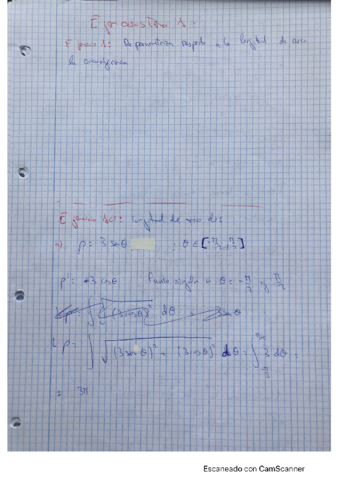 Ejercicios tema 1:
Ejercicio 1: Reparametrizar respecto a la longitud de arco
la
Ejercicio 10: longitud de arco de:
a) ρ = 3 senθ ; θ ∈ [-π/2, π/2]
ρ' = 3 cosθ Punto singular θ = -π/2 y π/2
ρ = ∫ √((3senθ)² + (3cosθ)²) dθ = ∫ 3 dθ =
= 3π
Escaneado con CamScanner